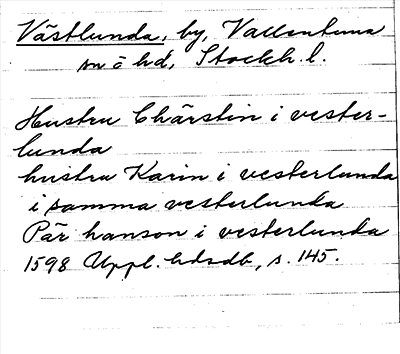 Västlunda, by, Vallentuna
sn o hd, Stockh. l.
Hustru Chärstin i vester-
lunda
hustru Karin i vesterlunda
i samma vesterlunda
Pär hanson i vesterlunda
1598 Uppl. hdsdb, s. 145.